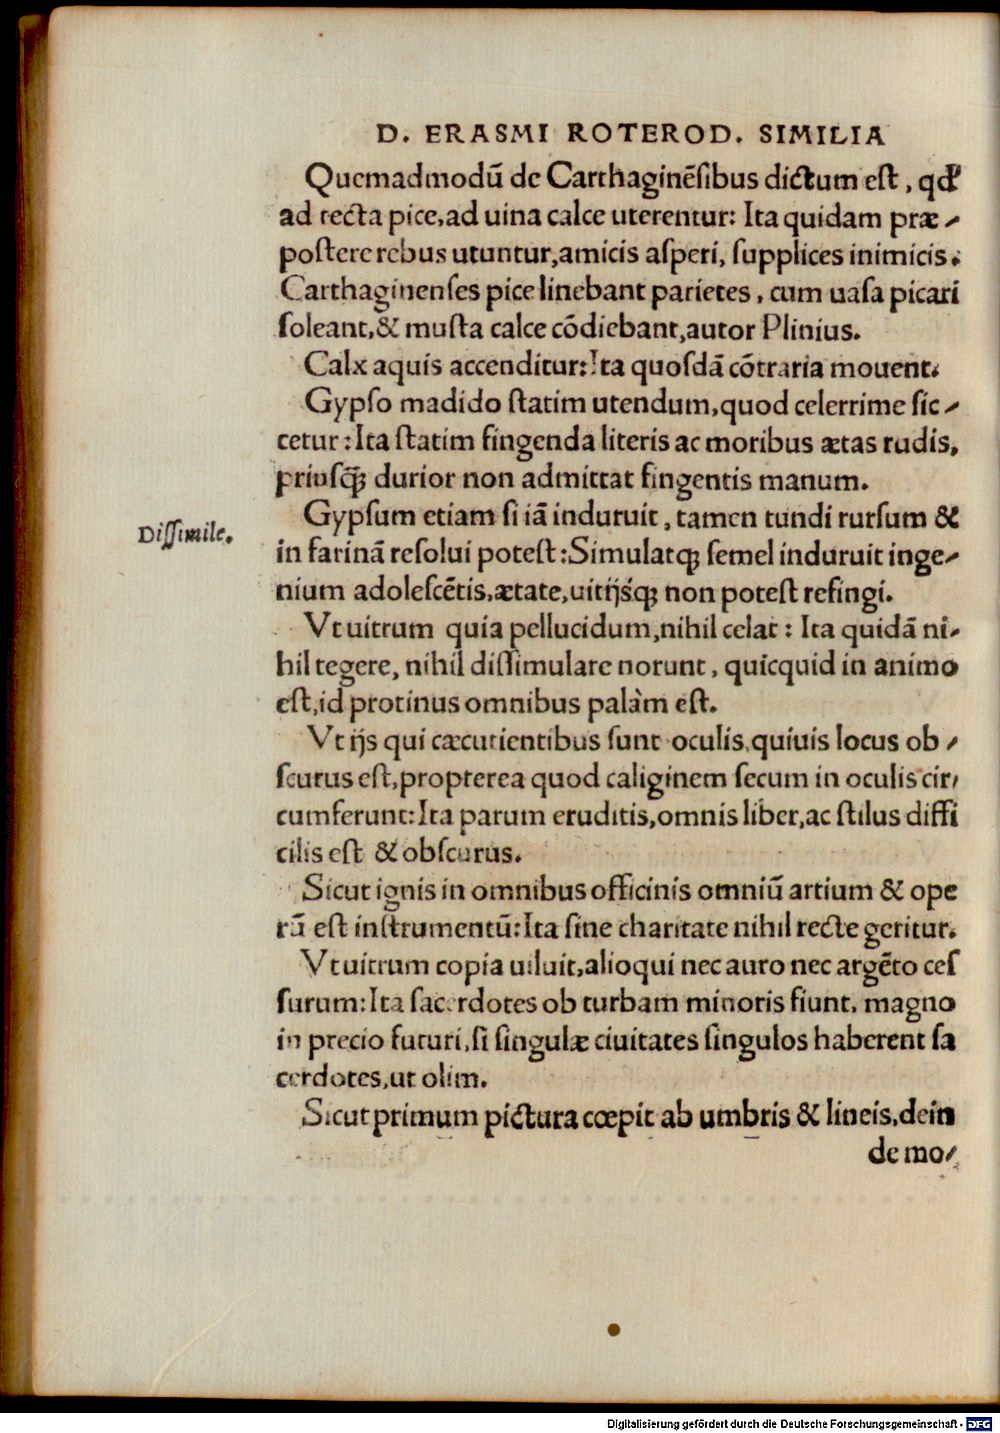 D. ERASMI ROTEROD. SIMILIA
Quemadmodū de Carthaginēſibus dictum eſt, qđ
ad tecta pice, ad uina calce uterentur: Ita quidam præ-
poſtere rebus utuntur, amicis aſperi, ſupplices inimicis.
Carthaginenſes pice linebant parietes, cum uaſa picari
ſoleant, & muſta calce cōdiebant, autor Plinius.
Calx aquis accenditur: Ita quoſdā cōtraria mouent.
Gypſo madido ſtatim utendum, quod celerrime ſic-
cetur: Ita ſtatim fingenda literis ac moribus ætas rudis,
priuſꝗ̃ durior non admittat fingentis manum.
Dißimile.
Gypſum etiam ſi iā induruit, tamen tundi rurſum &
in farinā reſolui poteſt: Simulatqꝫ ſemel induruit inge-
nium adoleſcētis, ætate, uitijśqꝫ non poteſt refingi.
Vt uitrum quia pellucidum, nihil celat: Ita quidā ni-
hil tegere, nihil diſſimulare norunt, quicquid in animo
eſt, id protinus omnibus palàm eſt.
Vt ijs qui cæcutientibus ſunt oculis, quiuis locus ob-
ſcurus eſt, propterea quod caliginem ſecum in oculis cir-
cumferunt: Ita parum eruditis, omnis liber, ac ſtilus diffi
cilis eſt & obſcurus.
Sicut ignis in omnibus officinis omniū artium & ope
rū eſt inſtrumentū: Ita ſine charitate nihil recte geritur.
Vt uitrum copia uiluit, alioqui nec auro nec argēto ceſ
ſurum: Ita ſacerdotes ob turbam minoris fiunt, magno
in precio futuri, ſi ſingulæ ciuitates ſingulos haberent ſa
cerdotes, ut olim.
Sicut primum pictura cœpit ab umbris & lineis, dein
de mo-
Digitalisierung gefördert durch die Deutsche Forschungsgemeinschaft - DFG